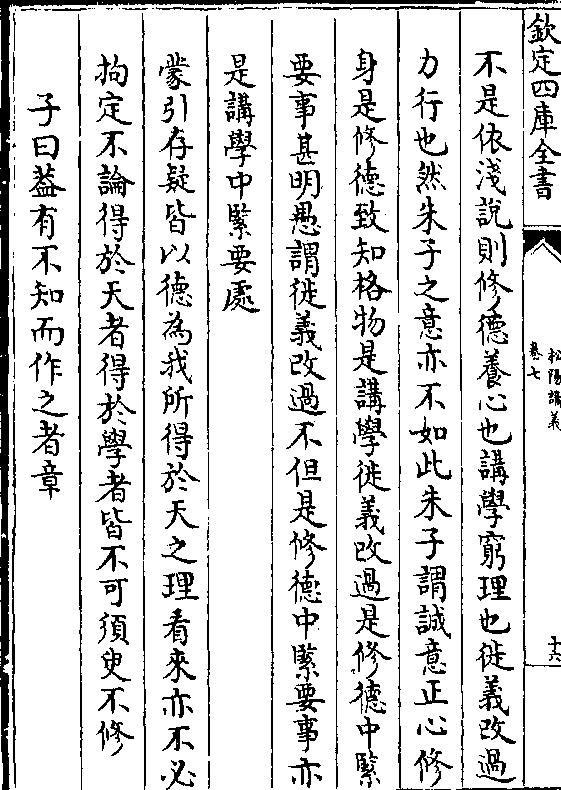 欽定四庫全書
松陽講義
卷七
十六
不是依淺說則修德養心也講學窮理也徙義改過
力行也然朱子之意亦不如此朱子謂誠意正心修
身是修德致知格物是講學徙義改過是修德中緊
要事甚明愚謂徙義改過不但是修德中緊要事亦
是講學中緊要處
蒙引存疑皆以德為我所得於天之理看來亦不必
拘定不論得於天者得於學者皆不可須臾不修
子曰葢有不知而作之者章